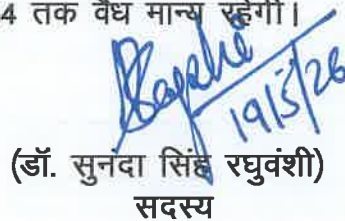 4 तक वैध मान्य रहेगी।
19/5/26
(डॉ. सुनंदा सिंह रघुवंशी)
सदस्य